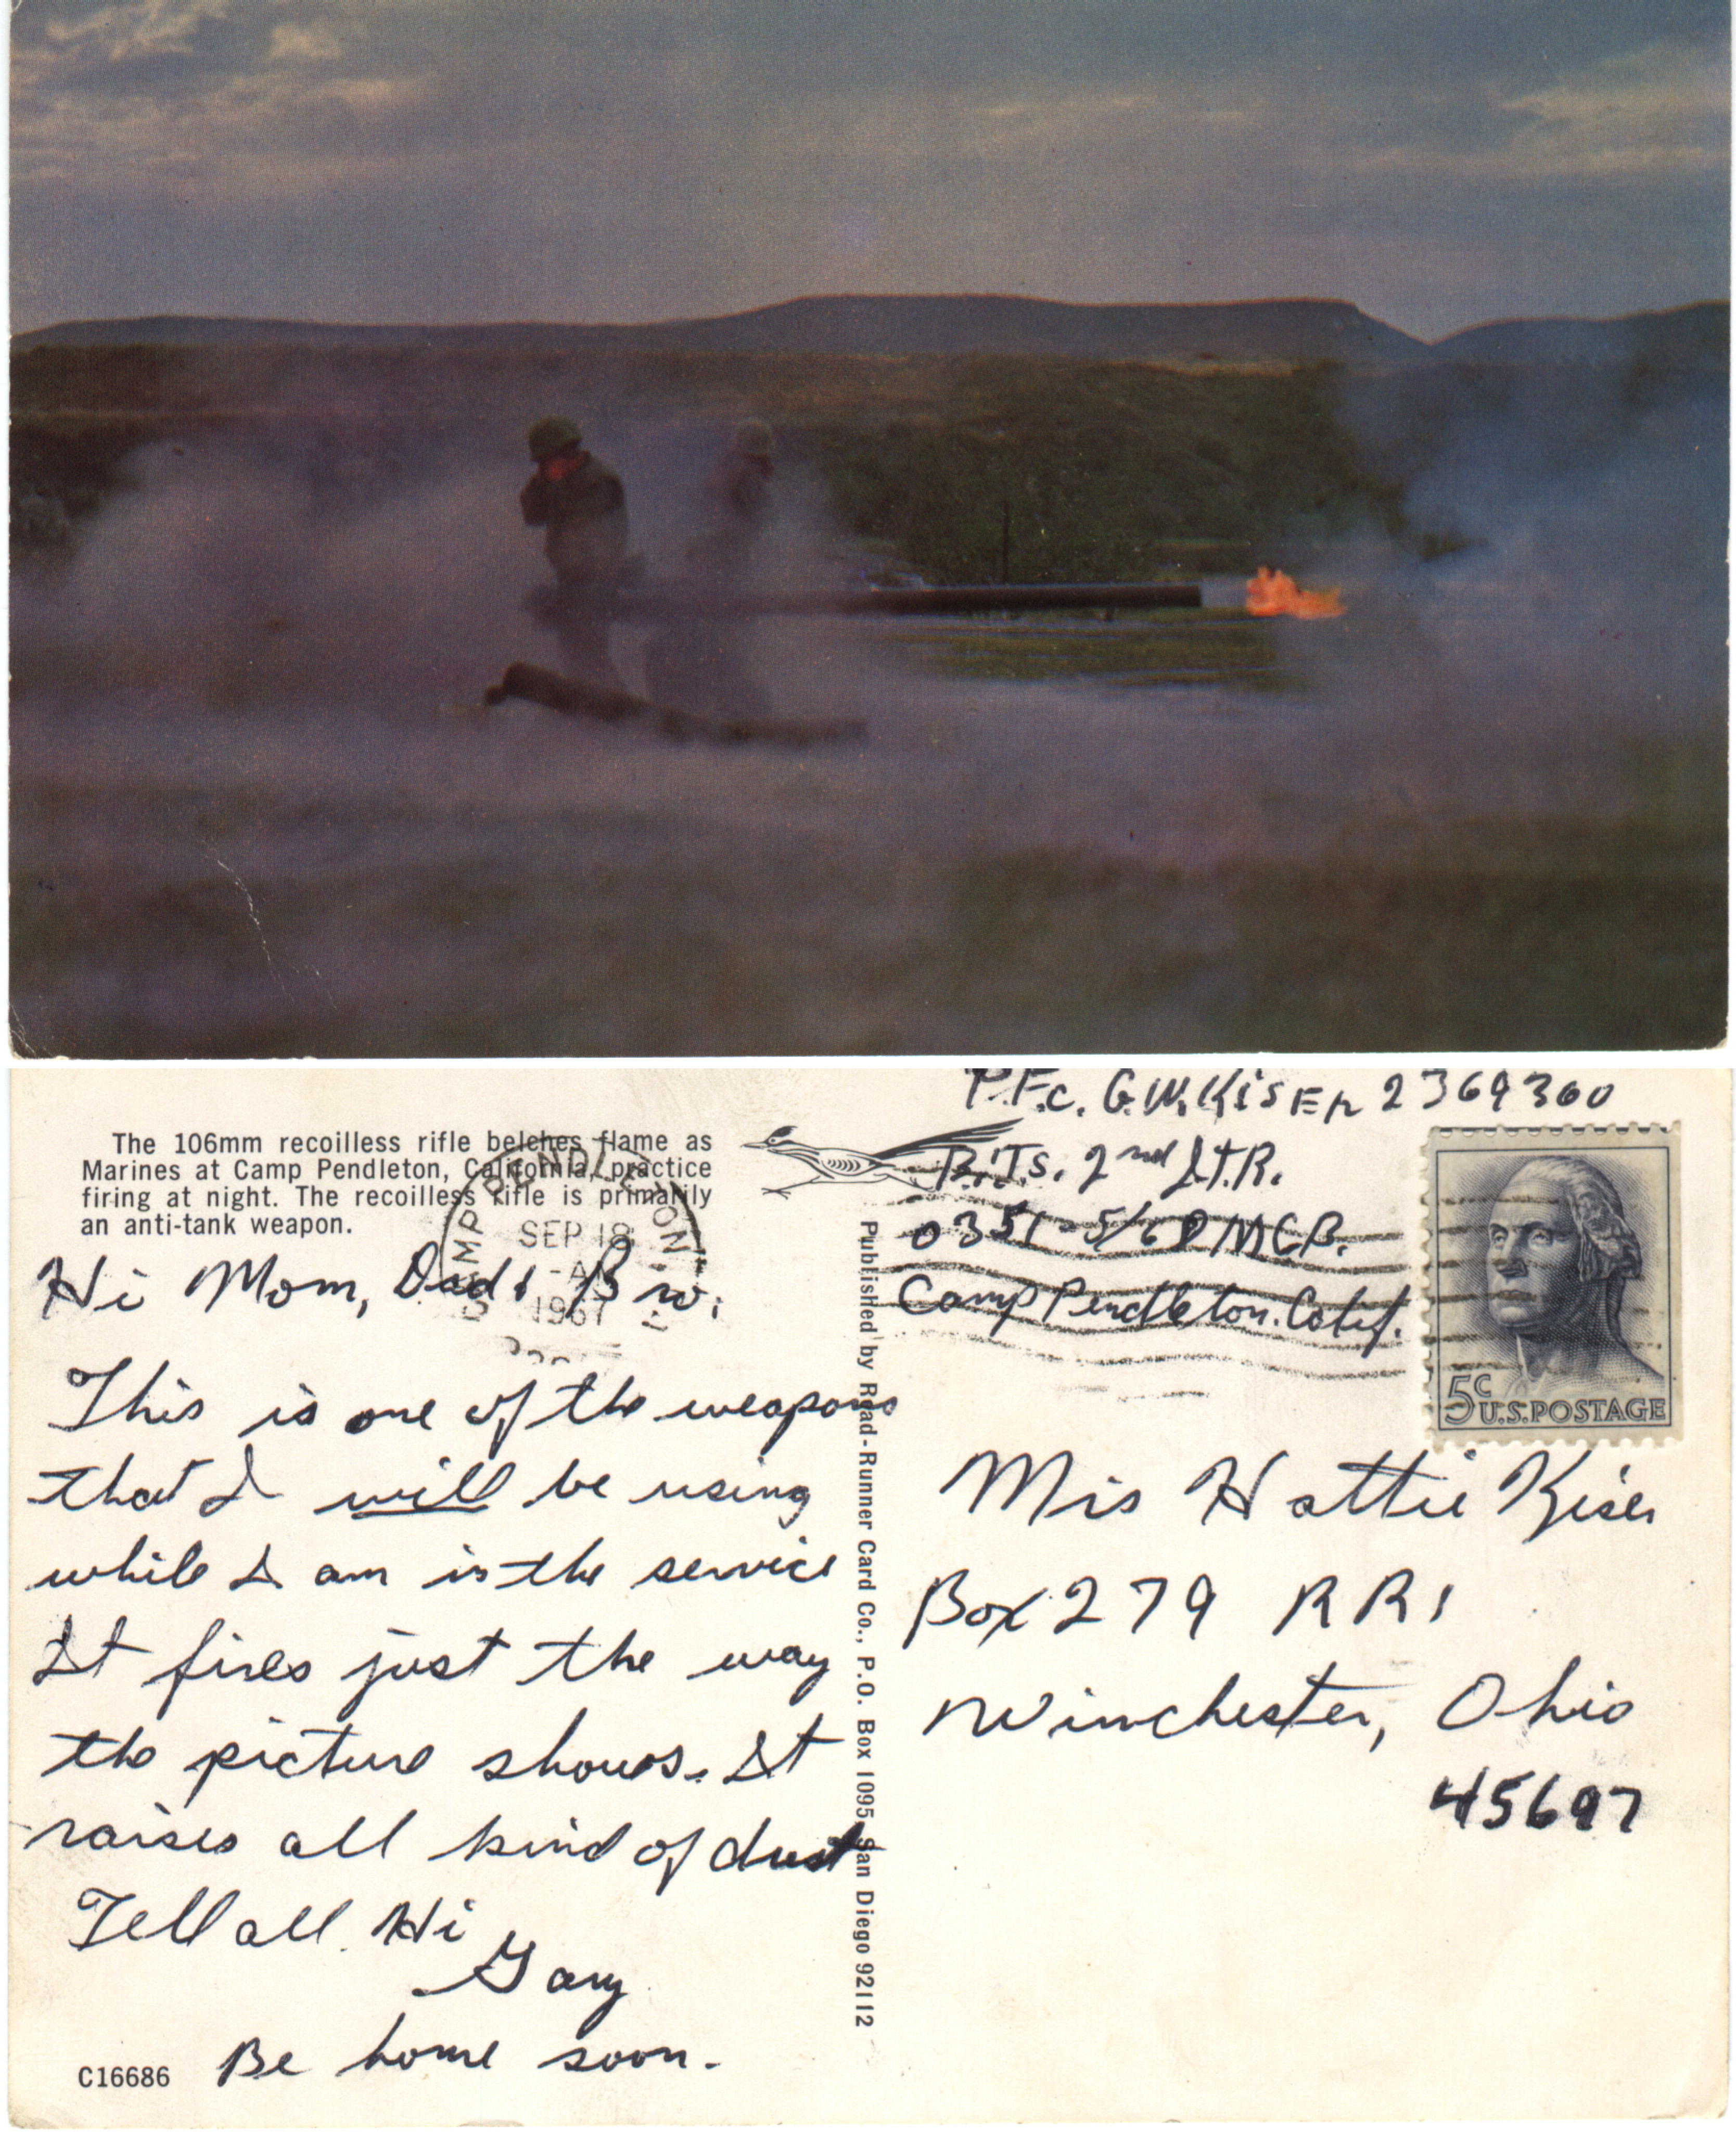 The 106mm recoilless rifle belches flame as
Marines at Camp Pendleton, California, practice
firing at night. The recoilless rifle is primarily
an anti-tank weapon.
CAMP PENDLETON
SEP 18
1967
Hi Mom, Dad & Bro:
This is one of the weapons
that I will be using
while I am in the service
It fires just the way
the picture shows. It
raises all kind of dust
Tell all Hi
Gary
Be home soon.
C16686
Published by Road-Runner Card Co., P.O. Box 1095 San Diego 92112
P.F.c. G.W. Kiser 2369300
B.I.T.S. 2nd I.T.R.
0351-5/68 MCB.
Camp Pendleton. Calif.
5c
U.S. POSTAGE
Mis Hattie Kiser
Box 279 RR1
Winchester, Ohio
45697